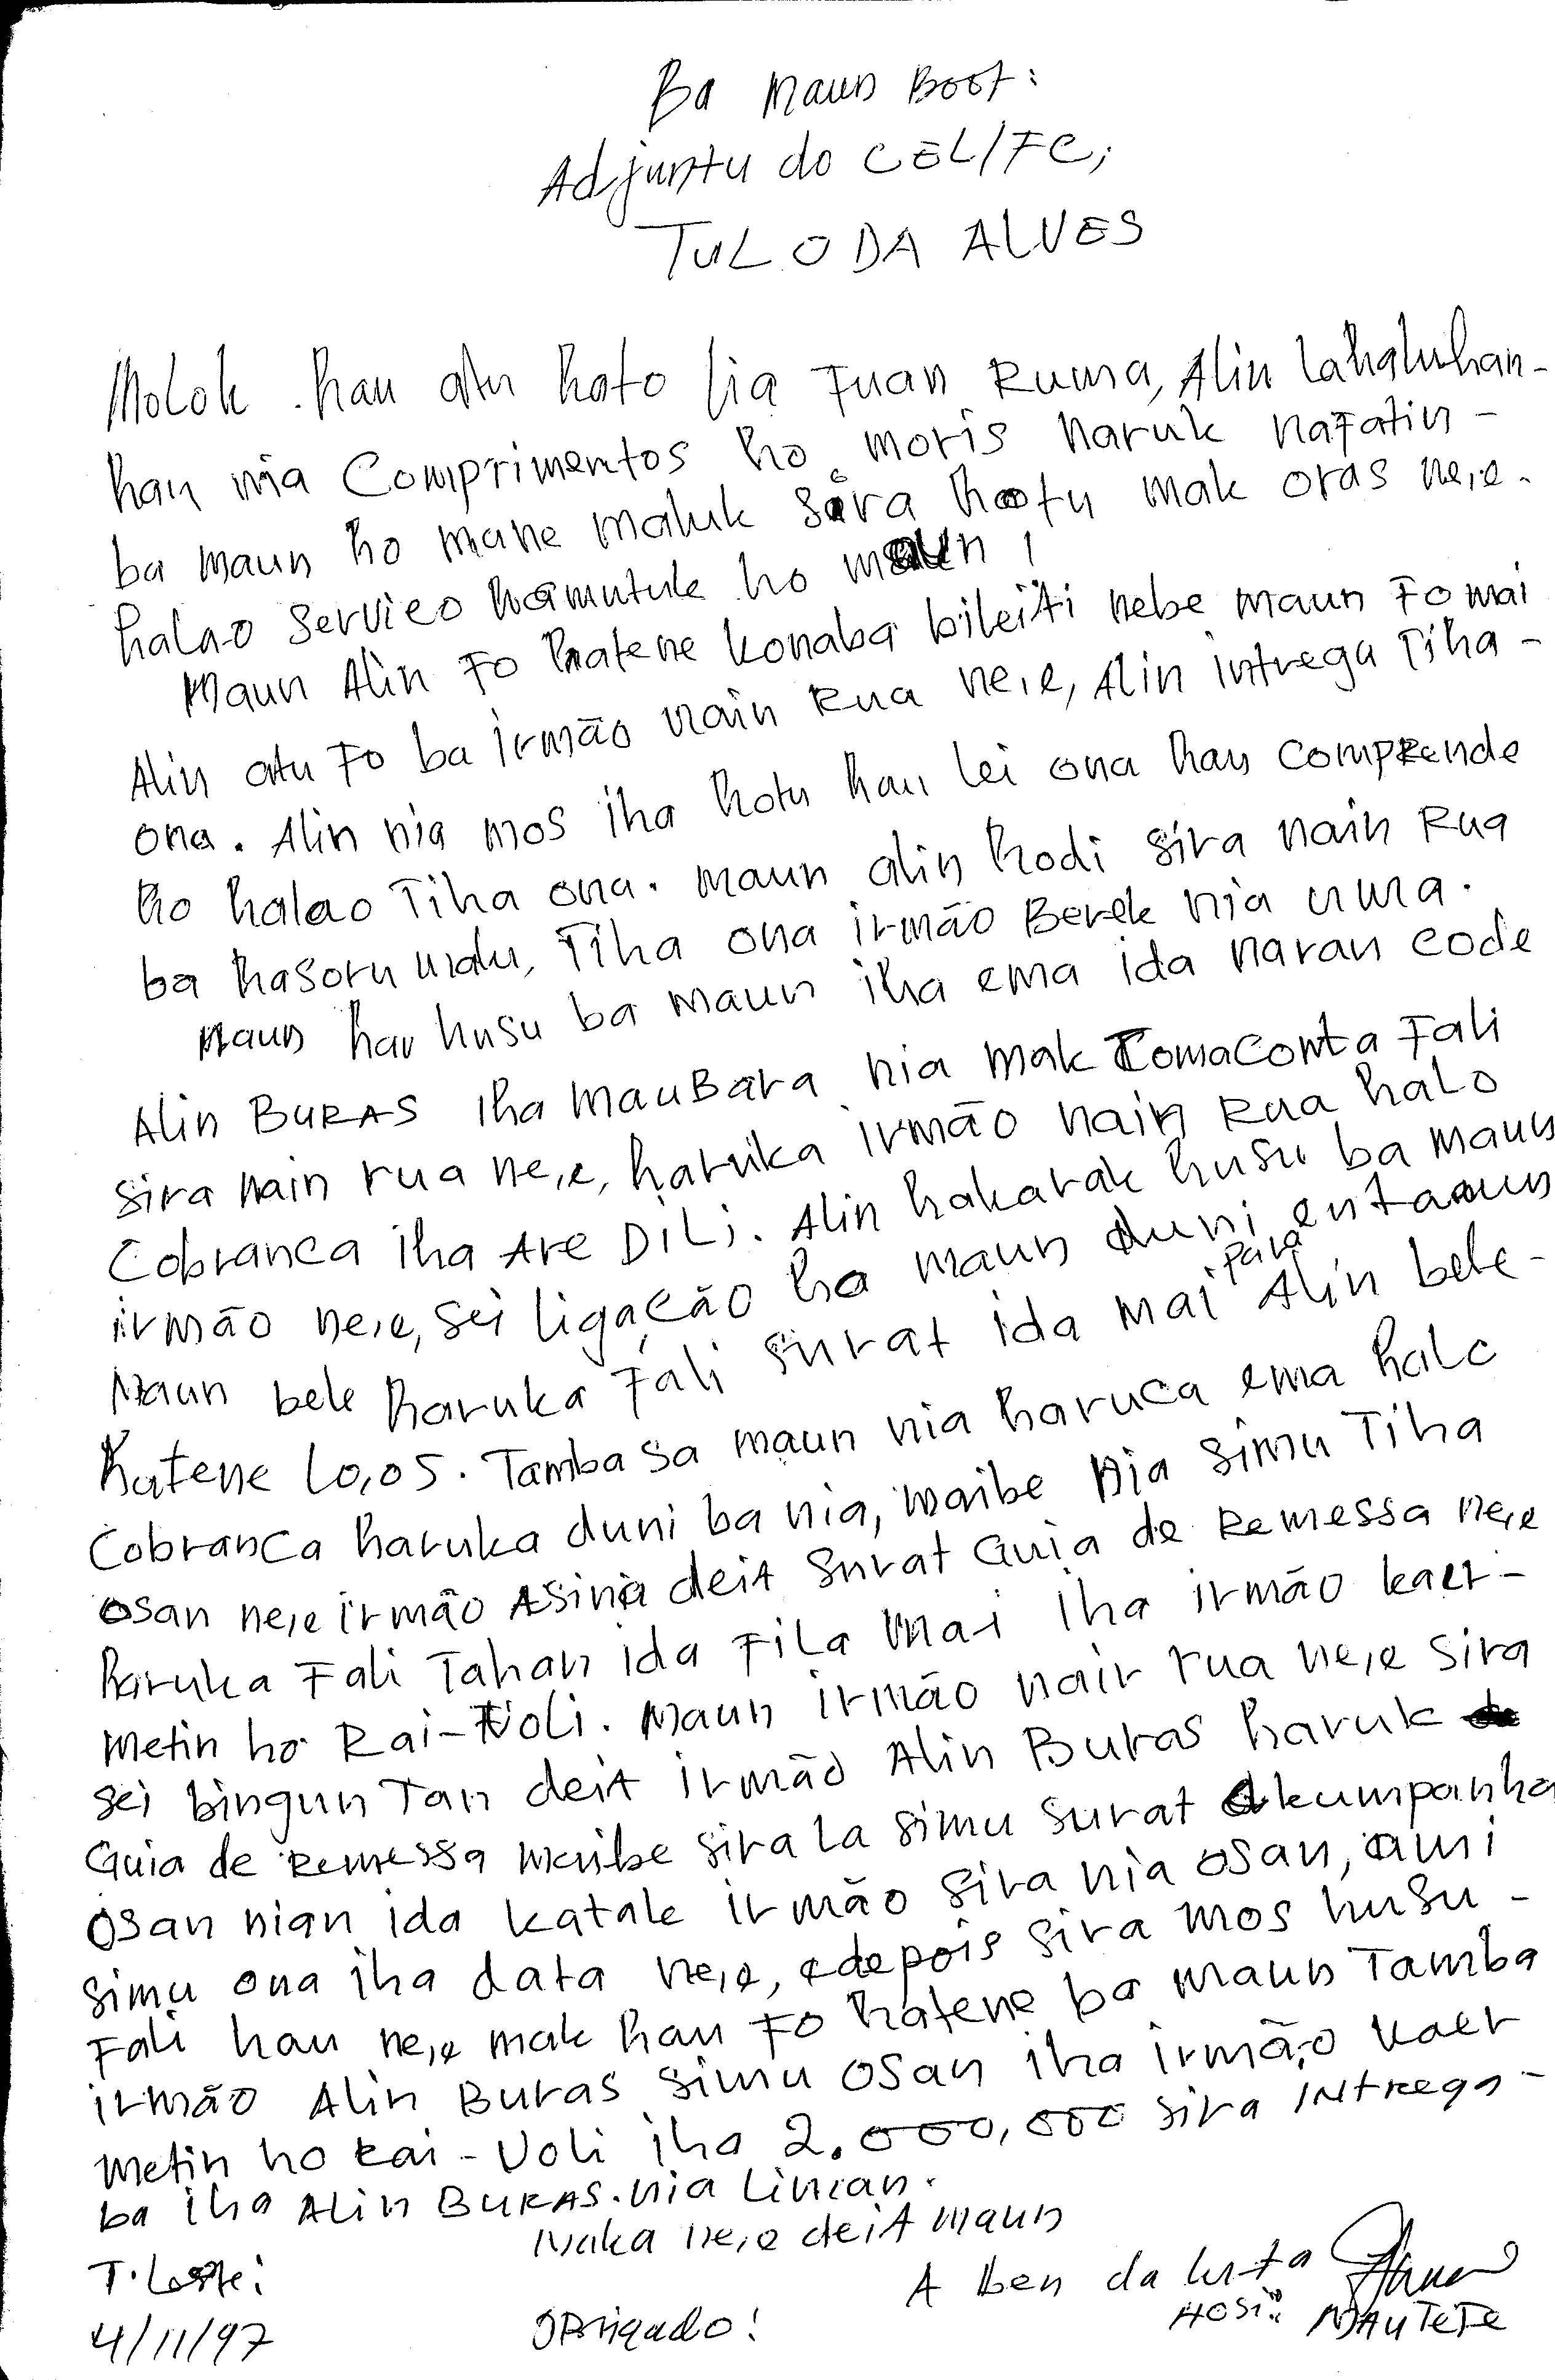 Ba Maun Boot:
Adjuntu do CEL/FC;
TULODA ALVES
Molok hau atu hato lia Fuan Ruma, Alin lahaluhan-
hau nia Comprimentos ho moris naruk nafatin-
ba maun ho mane maluk sira hotu mak oras ne,e.
halao servico hamutuk ho maun!
Maun Alin Fo hatene konaba bileiti nebe maun Fo mai
Alin atu Fo ba irmão nain Rua ne,e, Alin intrega Tiha-
ona. Alin nia mos iha hotu hau lei ona hau comprende
ho halao Tiha ona. maun alin hodi sira nain Rua
ba hasoru malu, Tiha ona irmão Berek nia uma.
maun hau husu ba maun iha ema ida naran code
Alin BURAS iha MauBara nia mak Tomaconta Fali
sira nain rua ne,e, haruka irmão nain Rua halo
Cobranca iha Are DiLi. Alin hakarak husu ba maun
irmão ne,e, sei ligação ho maun duni entaoun
Maun bele haruka Fali surat ida mai para Alin bele-
hatene lo,os. Tamba sa maun nia haruca ema halo
Cobranca haruka duni ba nia, maibe nia simu Tiha
osan ne,e irmão Asina deit surat Guia de Remessa ne,e
haruka Fali Tahan ida Fila mai iha irmão kaer-
metin ho Rai-Voli. Maun irmão nain rua ne,e sira
sei bingun Tan deit irmão Alin Buras haruk
Guia de Remessa maibe sira la simu surat akumpanha
osan nian ida katak irmão sira nia osan, ami
simu ona iha data ne,e, edepois sira mos husu-
Fali hau ne,e mak hau Fo hatene ba maun Tamba
irmão Alin Buras simu osan iha irmão kaer
metin ho Rai-Voli iha 2.000,000 sira intrega-
ba iha Alin BURAS.nia Liman.
Naka ne,e deit maun
T.Leste:
A ben da luta
Hosi: MAUTEFE
4/11/97
OBrigado!